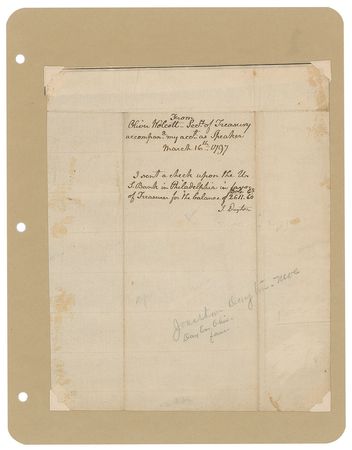 From
Oliver Wolcott Secty. of Treasury
accompany. my acct. as Speaker
March 16th. 1797
I sent a check upon the Un:
S. Bank in Philadelphia in favor
of Treasurer for the balance of 2611.
J. Dayton
Jonathan Dayton
Dayton Ohio
fame